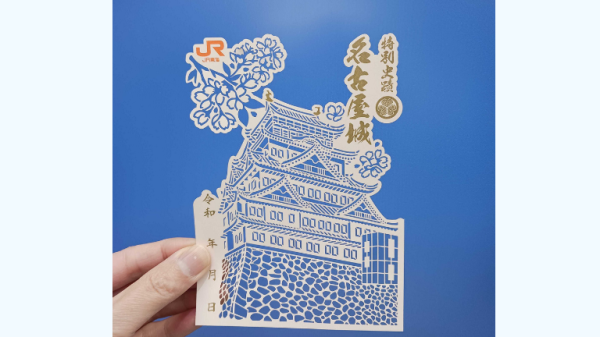 JR
JR東海
特別史跡
名古屋城
令和 年 月 日